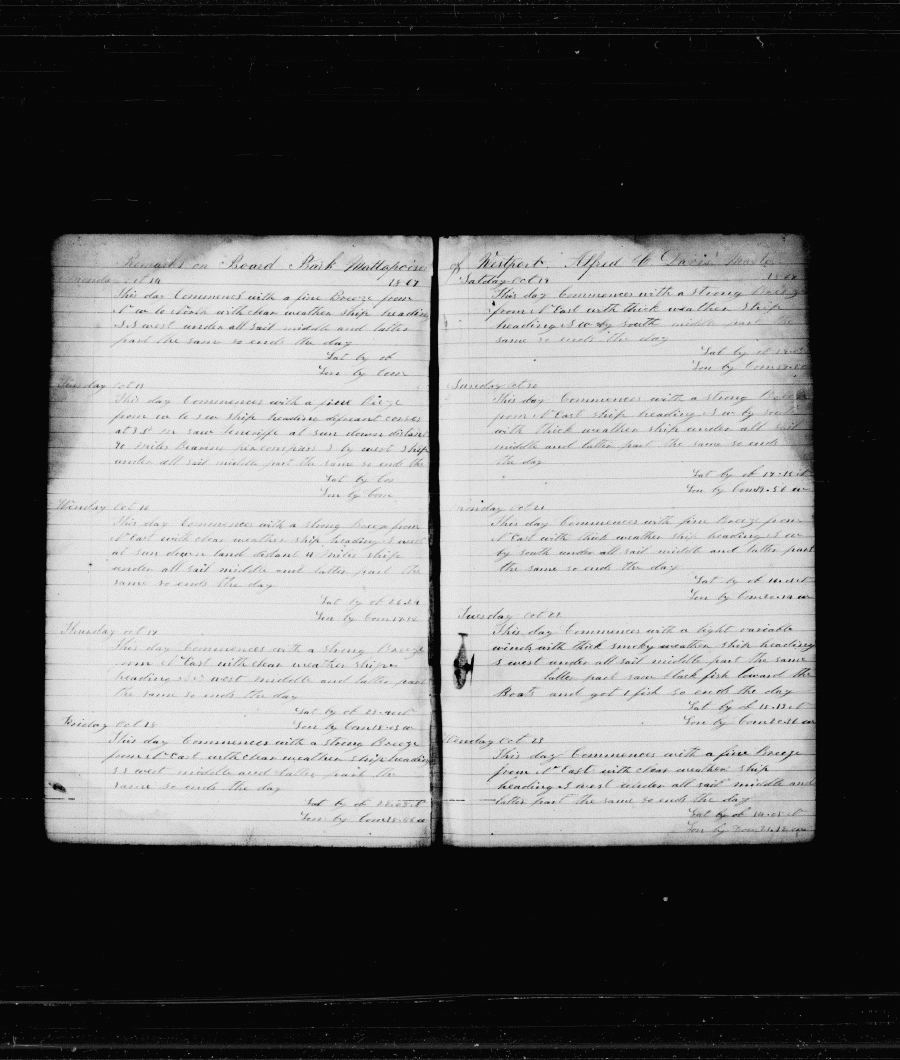 Remarks on Board Bark Mattapoise
Monday Oct 14 1867
This day Commences with a fine Breeze from
N w to North with clear weather ship heading
S S west under all sail middle and latter
part the same so ends the day
Lat by ob
Lon by Cour
Tuesday Oct 15
This day Commences with a fine Breze
from w to S w ship heading different corses
at 3 P m saw Teneriffe at sun down distant
40 miles Bearing par compass S by west ship
under all sail middle part the same so ends the
Lat by
Lon by Crom
Wensday Oct 16
This day Commences with a stong Breeze from
N East with clear weather ship heading S west
at sun down land distant miles ship
under all sail middle and latter part the
same so ends the day
Lat by ob 26-29
Lon by Crom
Thursday Oct 17
This day Commences with a strong Breeze
from N East with clear weather ship
heading S S west middle and latter part
the same so ends the day
Lat by ob
Lon by Crom
Friday Oct 18
This day Commences with a strong Breeze
from N East with clear weather ship heading
S S west middle and latter part the
same so ends the day
Lat by ob
Lon by Crom
of Westport Alfred C Davis Master
Satday Oct 19 1867
This day Commences with a strong Breeze
from N East with thick weather ship
heading S w by south middle part the
same so ends the day
Lat by ob
Lon by Crom
Sunday Oct 20
This day Commences with a strong Breeze
from N East ship heading S w by south
with thick weather ship under all sail
middle and latter part the same so ends
the day
Lat by ob 17-18 N
Lon by Crom 19-56 w
Monday Oct 21
This day Commences with fine Breeze from
N East with thick weather ship heading S w
by south under all sail middle and latter part
the same so ends the day
Lat by ob
Lon by Crom
Tuesday Oct 22
This day Commences with a light variable
winds with thick smoky weather ship heading
S west under all sail middle part the same
latter part saw black fish loward the
Boats and got 1 fish so ends the day
Lat by ob
Lon by Crom
Wensday Oct 23
This day Commences with a fine Breeze
from N East with clear weather ship
heading S west under all sail middle and
latter part the same so ends the day
Lat by ob
Lon by Crom